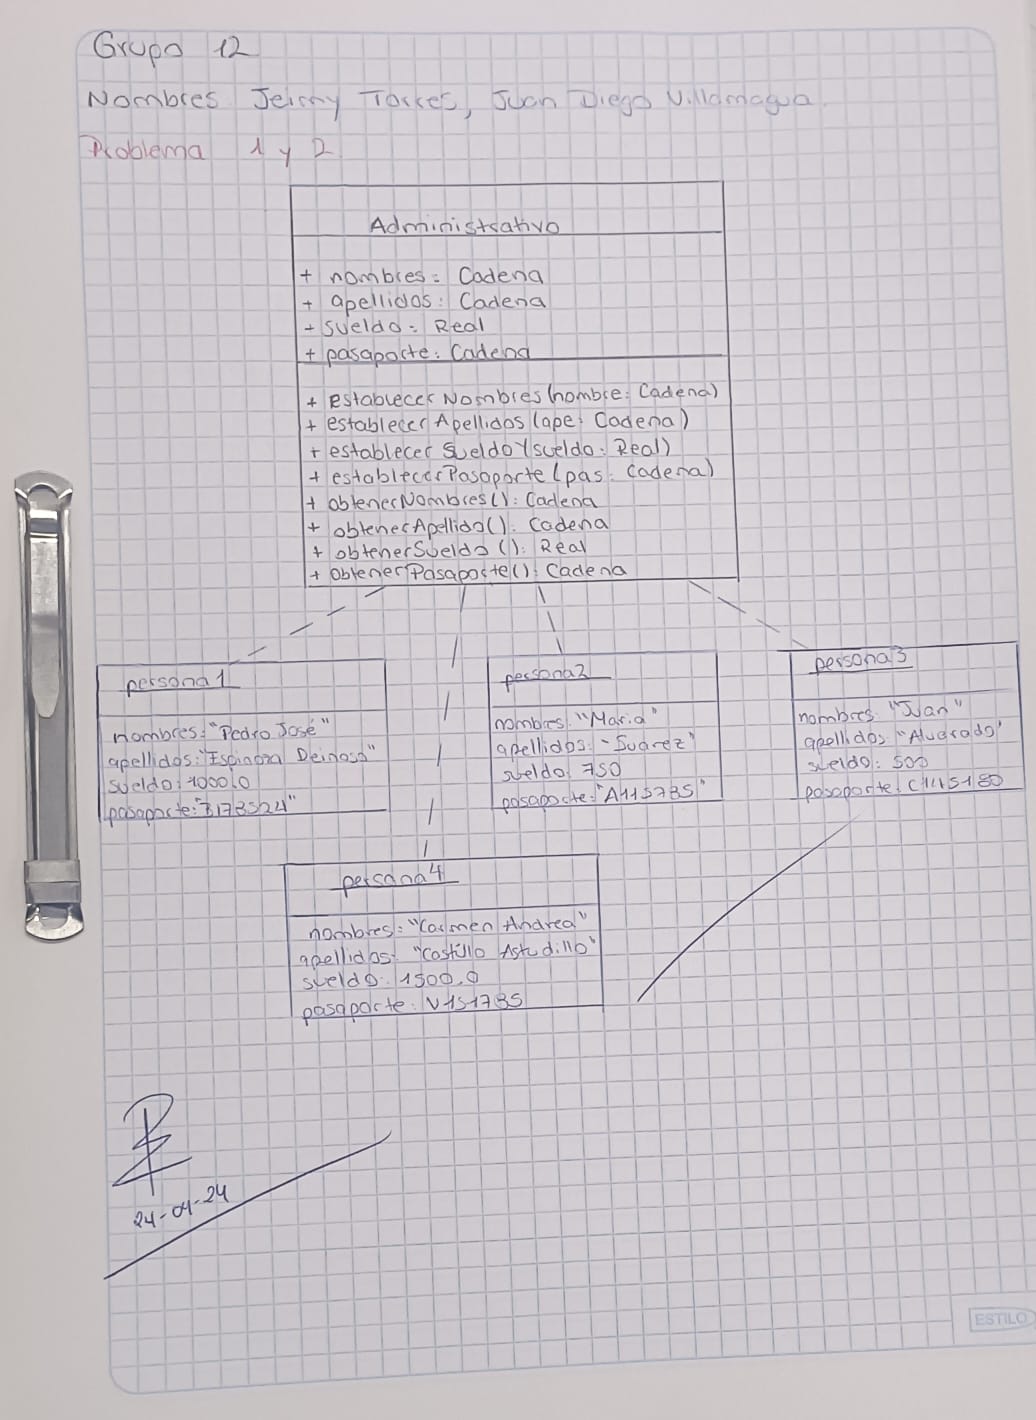 Grupo 12
Nombres Jeimy Torres, Juan Diego Villamagua.
Problema 1 y 2
Administrativo
+ nombres: Cadena
+ apellidos: Cadena
+ sueldo: Real
+ pasaporte: Cadena
+ establecer Nombres (nombre: Cadena)
+ establecer Apellidos (ape: Cadena)
+ establecer Sueldo (sueldo: Real)
+ establecerPasaporte (pas: Cadena)
+ obtenerNombres(): Cadena
+ obtenerApellido(): Cadena
+ obtenerSueldo (): Real
+ obtenerPasaporte(): Cadena
persona1
nombres: "Pedro José"
apellidos: "Espinoza Deinoso"
sueldo: 1000.0
pasaporte:
persona2
nombres: "Maria"
apellidos: "Suarez"
sueldo: 750
pasaporte: "A1157BS"
persona3
nombres: "Juan"
apellidos "Alvarado"
sueldo: 500
pasaporte:
persona4
nombres: "Carmen Andrea"
apellidos: "Castillo Astudillo"
sueldo: 1500.0
pasaporte:
24-04-24
ESTILO